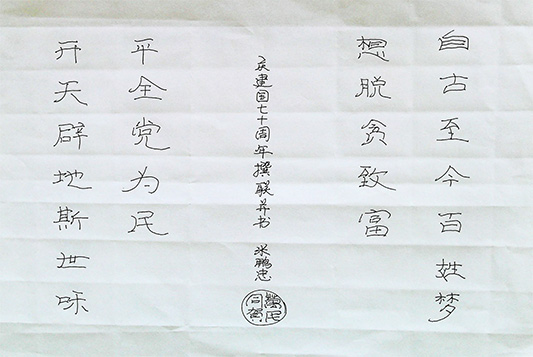 自古至今百姓梦
想脱贫致富
开天辟地斯世咊
平全党为民
庆建国七十周年撰联并书 米鹏忠
萬民同賀